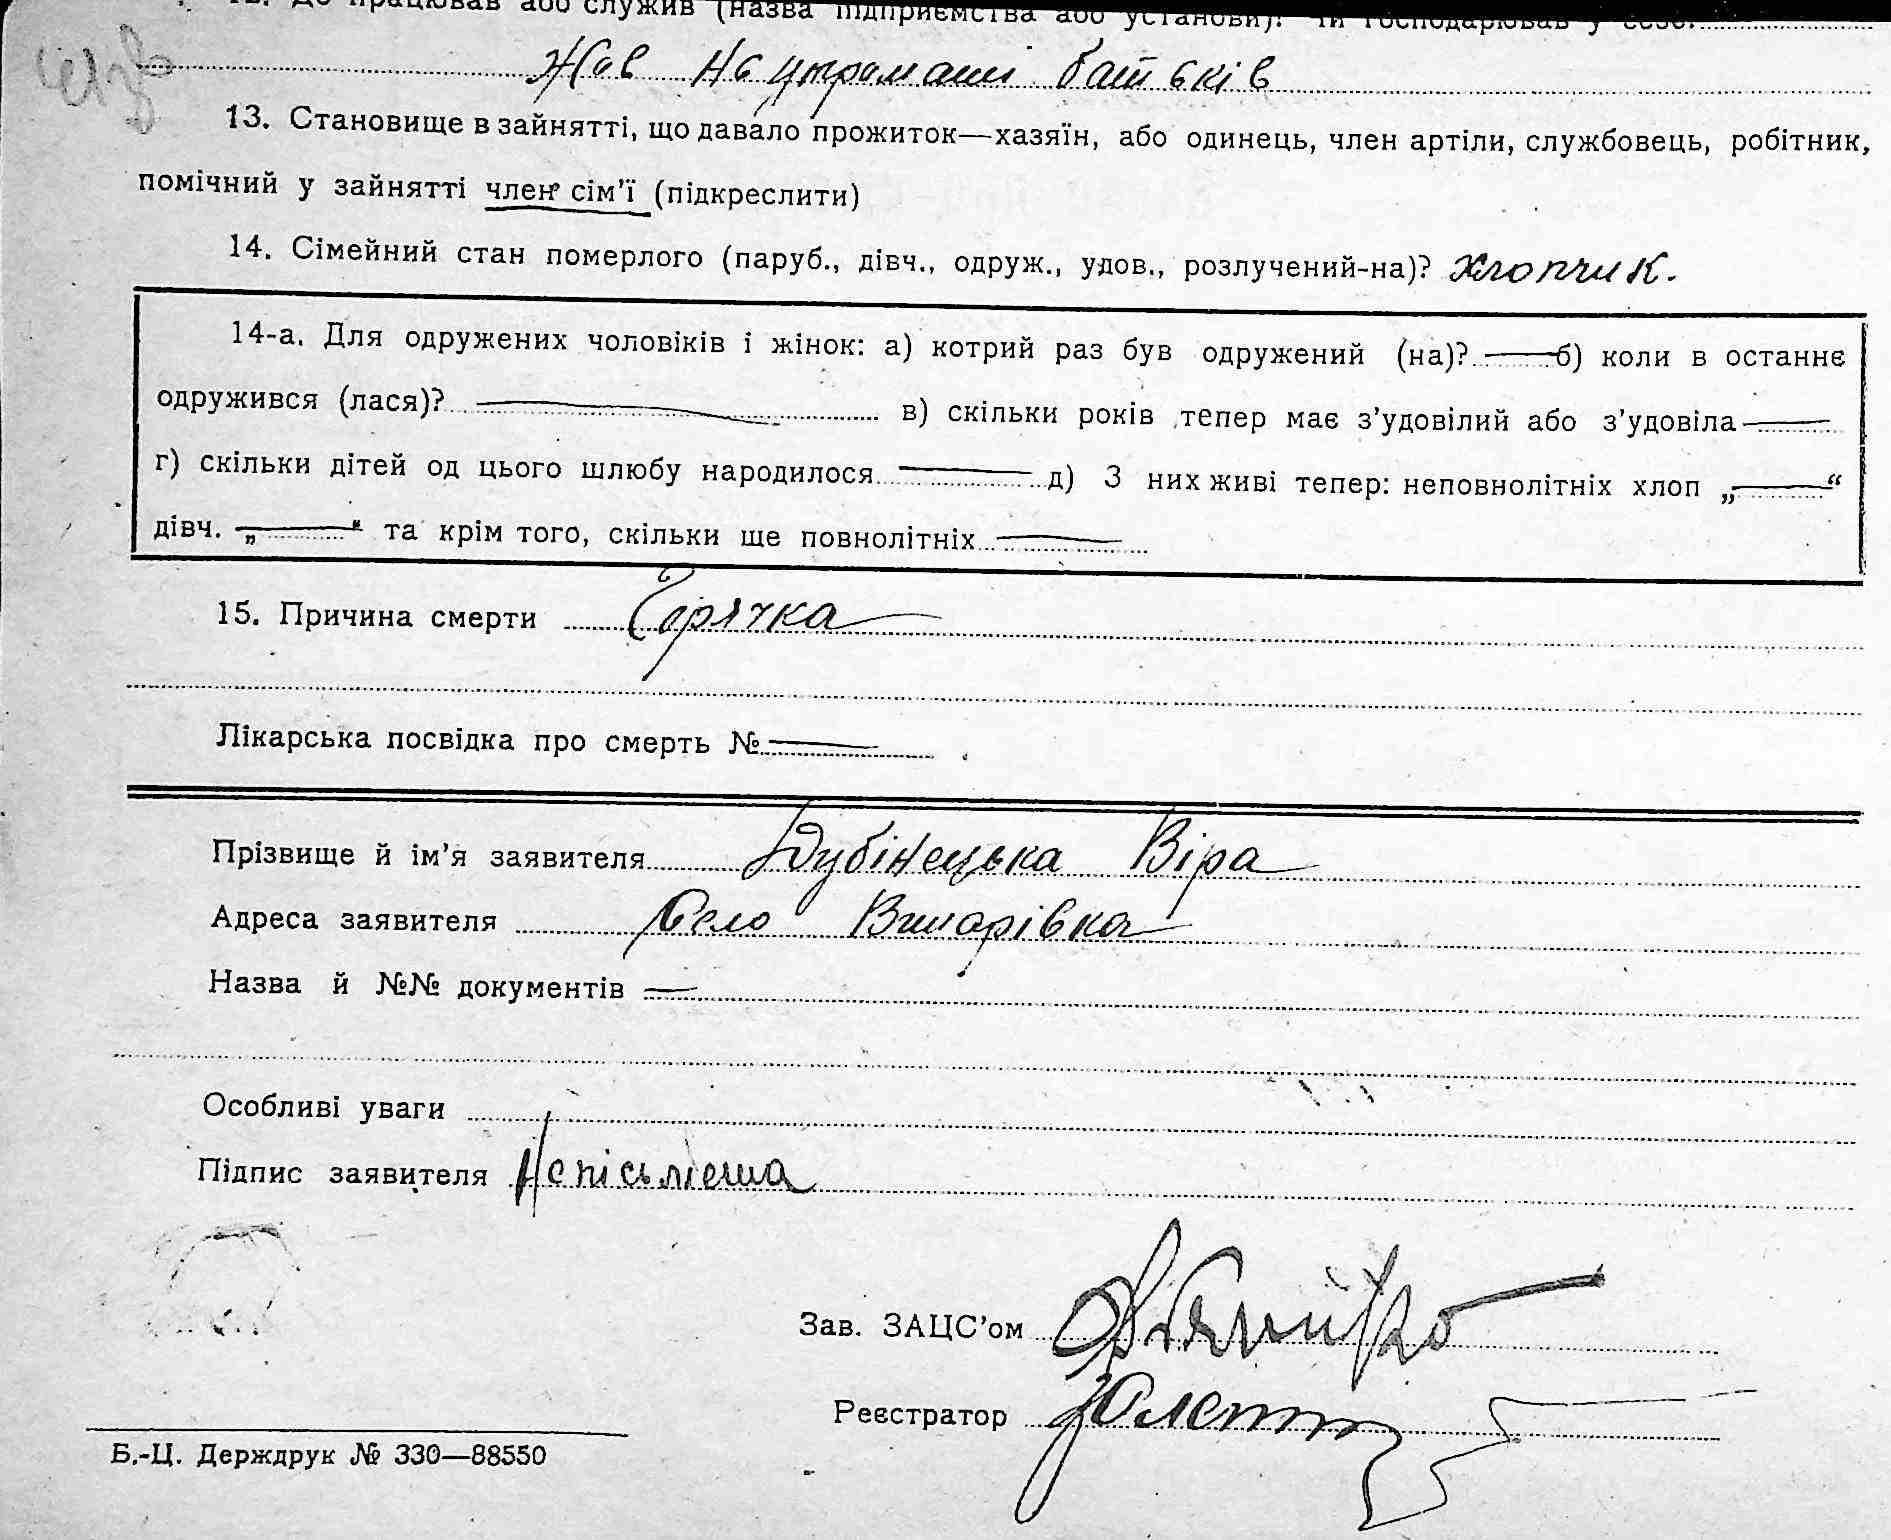 12. Де працював або служив (назва підприємства або установи)? Чи господарював у селі?
Жив на утрамані батьків
13. Становище в зайнятті, що давало прожиток—хазяїн, або одинець, член артіли, службовець, робітник,
помічний у зайнятті член сім'ї (підкреслити)
14. Сімейний стан померлого (паруб., дівч., одруж., удов., розлучений-на)? Хлопчик.
14-а. Для одружених чоловіків і жінок: а) котрий раз був одружений (на)? — б) коли в останнє
одружився (лася)? — в) скільки років тепер має з'удовілий або з'удовіла —
г) скільки дітей од цього шлюбу народилося — д) З них живі тепер: неповнолітніх хлоп „—“
дівч. „—“ та крім того, скільки ще повнолітніх —
15. Причина смерти Горячка
Лікарська посвідка про смерть № —
Прізвище й ім'я заявителя Дубінецька Віра
Адреса заявителя Село
Назва й №№ документів —
Особливі уваги
Підпис заявителя Непісьмена
Зав. ЗАЦС'ом
Реєстратор
Б.-Ц. Держдрук № 330—88550